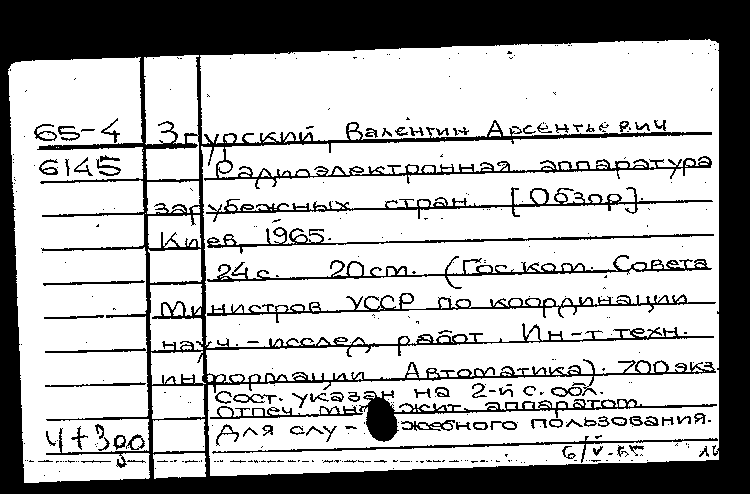 65-4 Згурский, Валентин Арсентьевич
6145 Радиоэлектронная аппаратура
зарубежных стран. [Обзор].
Киев, 1965.
24 с. 20 см. (Гос. ком. Совета
Министров УССР по координации
науч.-исслед. работ. Ин-т техн.
информации. Автоматика). 700 экз.
Сост. указан на 2-й с. обл.
Отпеч. множит. аппаратом.
Для слу- жебного пользования.
4+3